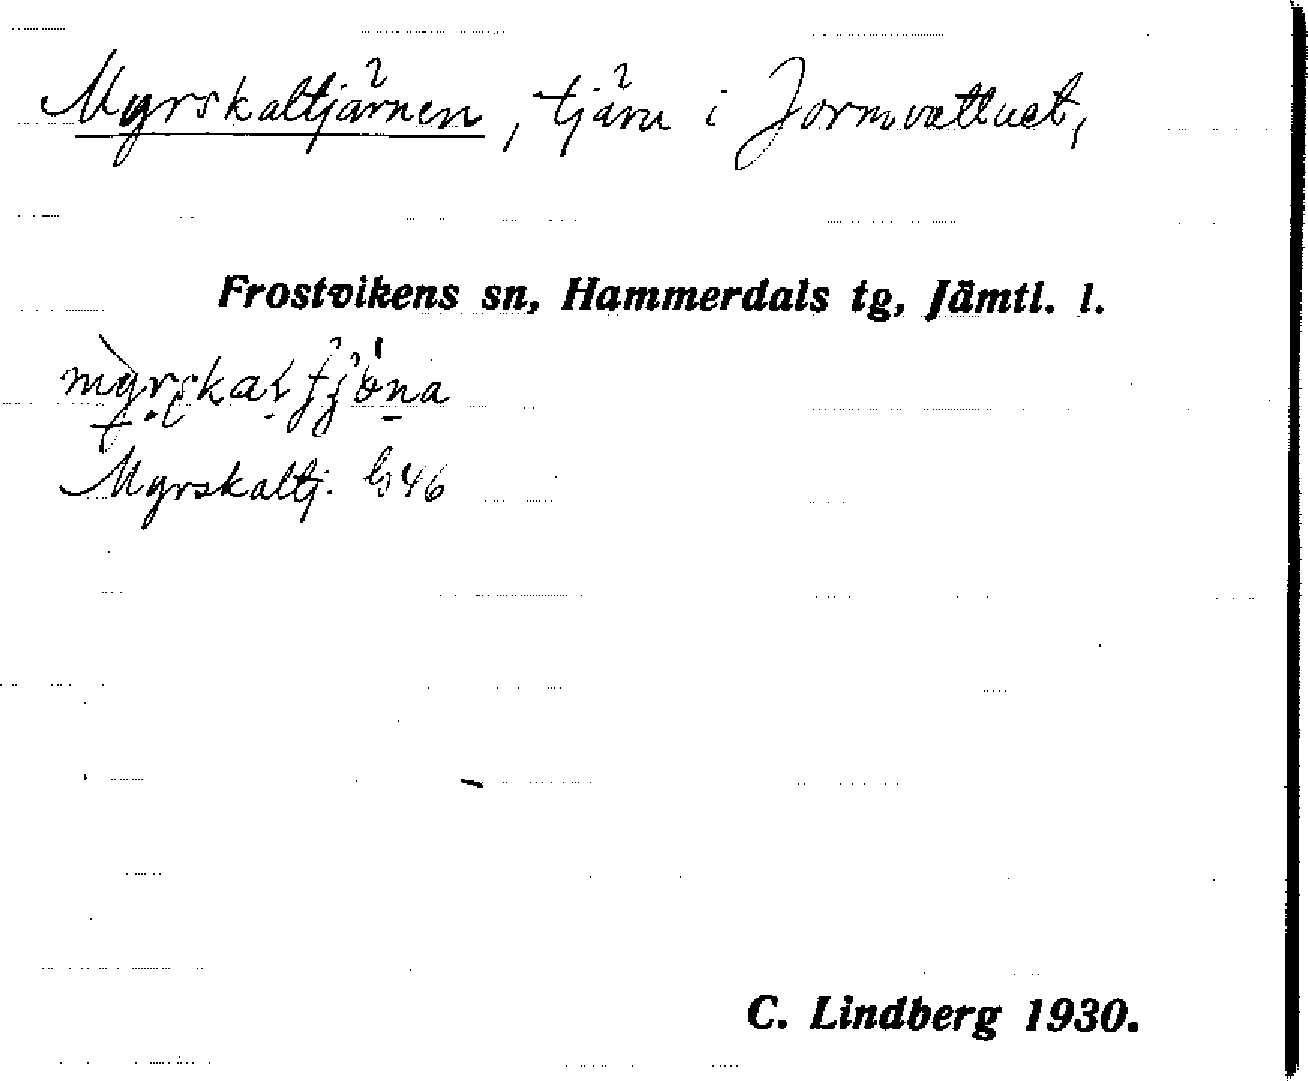 Myrskaltjärnen, tjärn i Jormvattnet,
Frostvikens sn, Hammerdals tg, Jämtl. l.
Myrskaltj. G46
C. Lindberg 1930.